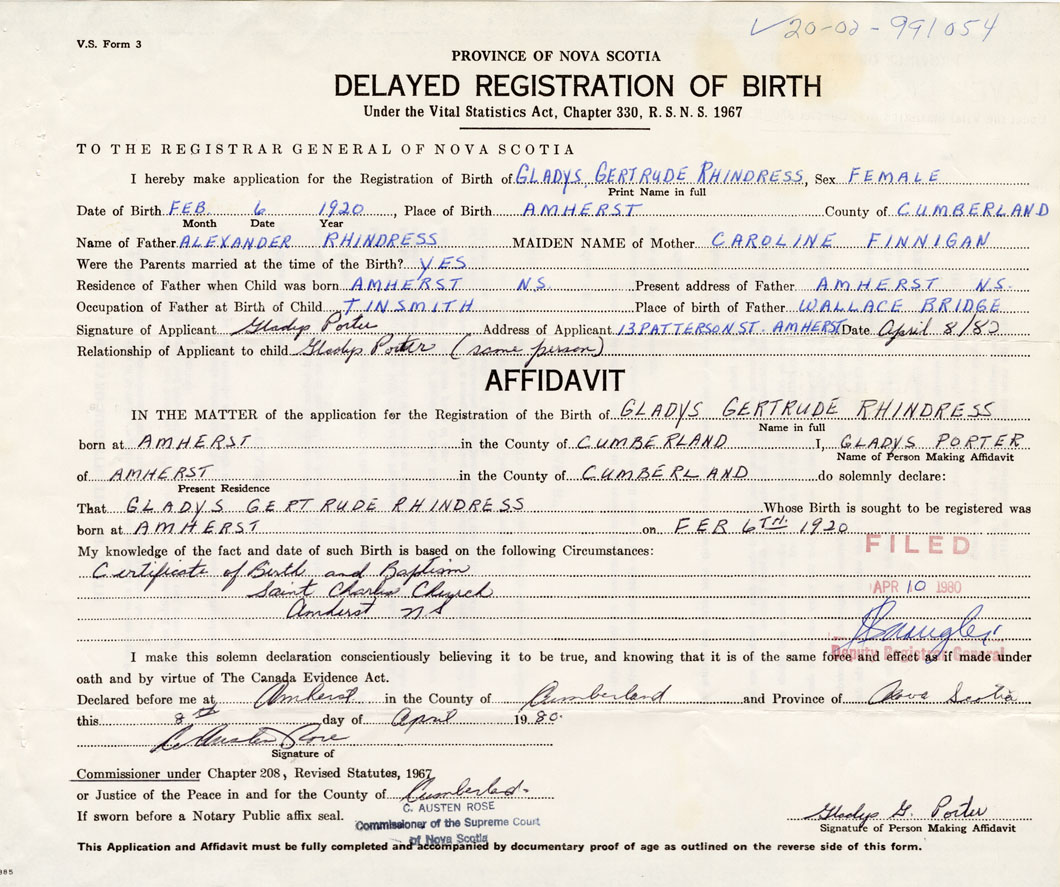 V.S. Form 3
✓20-02-991054
PROVINCE OF NOVA SCOTIA
DELAYED REGISTRATION OF BIRTH
Under the Vital Statistics Act, Chapter 330, R.S.N.S. 1967
TO THE REGISTRAR GENERAL OF NOVA SCOTIA
I hereby make application for the Registration of Birth of GLADYS GERTRUDE RHINDRESS, Sex FEMALE
Print Name in full
Date of Birth FEB. 6 1920, Place of Birth AMHERST County of CUMBERLAND
Month Date Year
Name of Father ALEXANDER RHINDRESS MAIDEN NAME of Mother CAROLINE FINNIGAN
Were the Parents married at the time of the Birth? YES
Residence of Father when Child was born AMHERST NS. Present address of Father AMHERST N.S.
Occupation of Father at Birth of Child TINSMITH Place of birth of Father WALLACE BRIDGE
Signature of Applicant Gladys Porter Address of Applicant 13 PATTERSON ST. AMHERST Date April 8/80
Relationship of Applicant to child Gladys Porter (same person)
AFFIDAVIT
IN THE MATTER of the application for the Registration of the Birth of GLADYS GERTRUDE RHINDRESS
Name in full
born at AMHERST in the County of CUMBERLAND I, GLADYS PORTER
Name of Person Making Affidavit
of AMHERST in the County of CUMBERLAND do solemnly declare:
Present Residence
That GLADYS GERTRUDE RHINDRESS Whose Birth is sought to be registered was
born at AMHERST on FEB 6TH 1920
My knowledge of the fact and date of such Birth is based on the following Circumstances:
FILED
Certificate of Birth and Baptism
Saint Charles Church
APR 10 1980
Amherst NS
Deputy Registrar General
I make this solemn declaration conscientiously believing it to be true, and knowing that it is of the same force and effect as if made under
oath and by virtue of The Canada Evidence Act.
Declared before me at Amherst in the County of Cumberland and Province of Nova Scotia
this 8th day of April 19 80.
C. Austen Rose
Signature of
Commissioner under Chapter 208, Revised Statutes, 1967
or Justice of the Peace in and for the County of Cumberland.
C. AUSTEN ROSE
If sworn before a Notary Public affix seal.
Commissioner of the Supreme Court
of Nova Scotia
Gladys G. Porter
Signature of Person Making Affidavit
This Application and Affidavit must be fully completed and accompanied by documentary proof of age as outlined on the reverse side of this form.